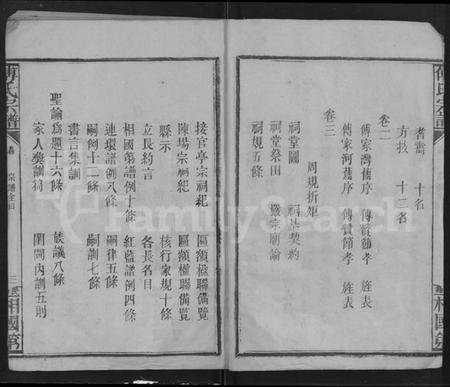 耆壽 十名
方技 十二名
卷二
傅家灣舊序 傅賢節孝 旌表
傅家河舊序 傅賢節孝 旌表
卷三
周規折矩
祠堂圖 祠基契約
祠堂祭田 嚴宗廟論
祠規五條
接官亭宗祠祀 區額楹聯備覽
陳場宗祠祀 區額楹聯備覽
縣示 核行家規十條
立長約言 各長名目
相國第譜例十條 紅藍譜例四條
連環譜例八條 嗣律五條
嗣例十二條 嗣訓七條
書言集訓
聖諭爲題十六條 族議八條
家人奬訓詞 閨閫內訓五則
傅氏宗譜
宗譜全目
三
相國第
FamilySearch